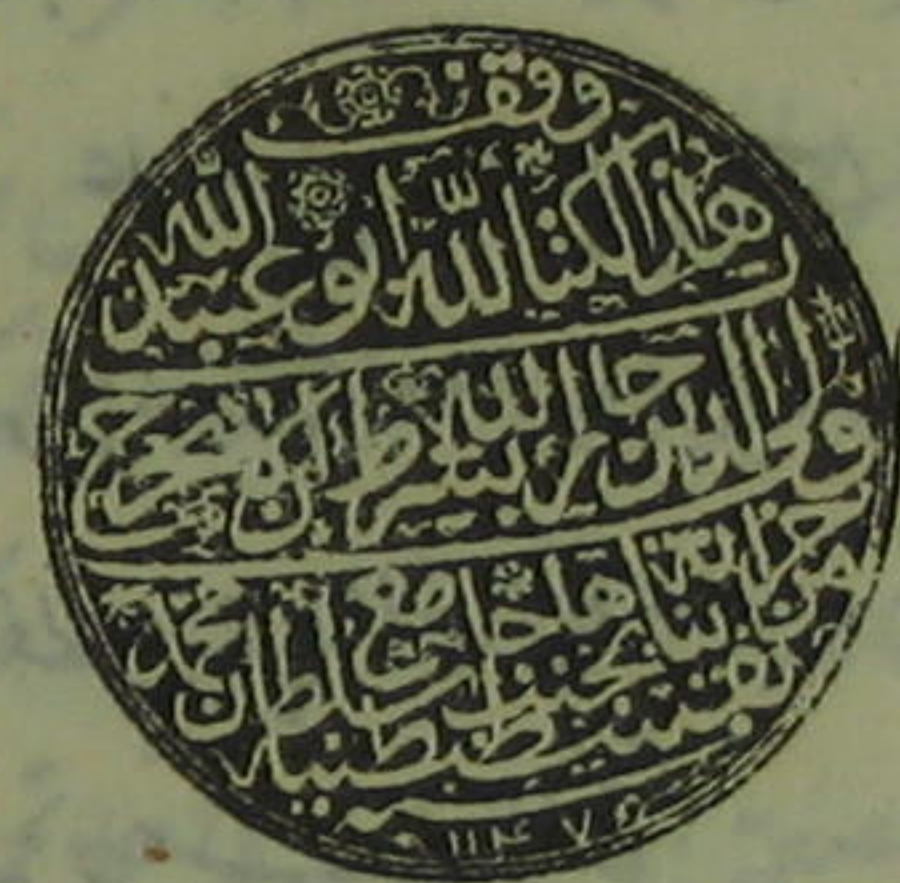 وقف
هذا الكتاب لله ابو عبد الله
ولي الدين جار الله بشرط ان لا يخرج
من خزانة بناها بجنب جامع سلطان محمد
بقسطنطينيه